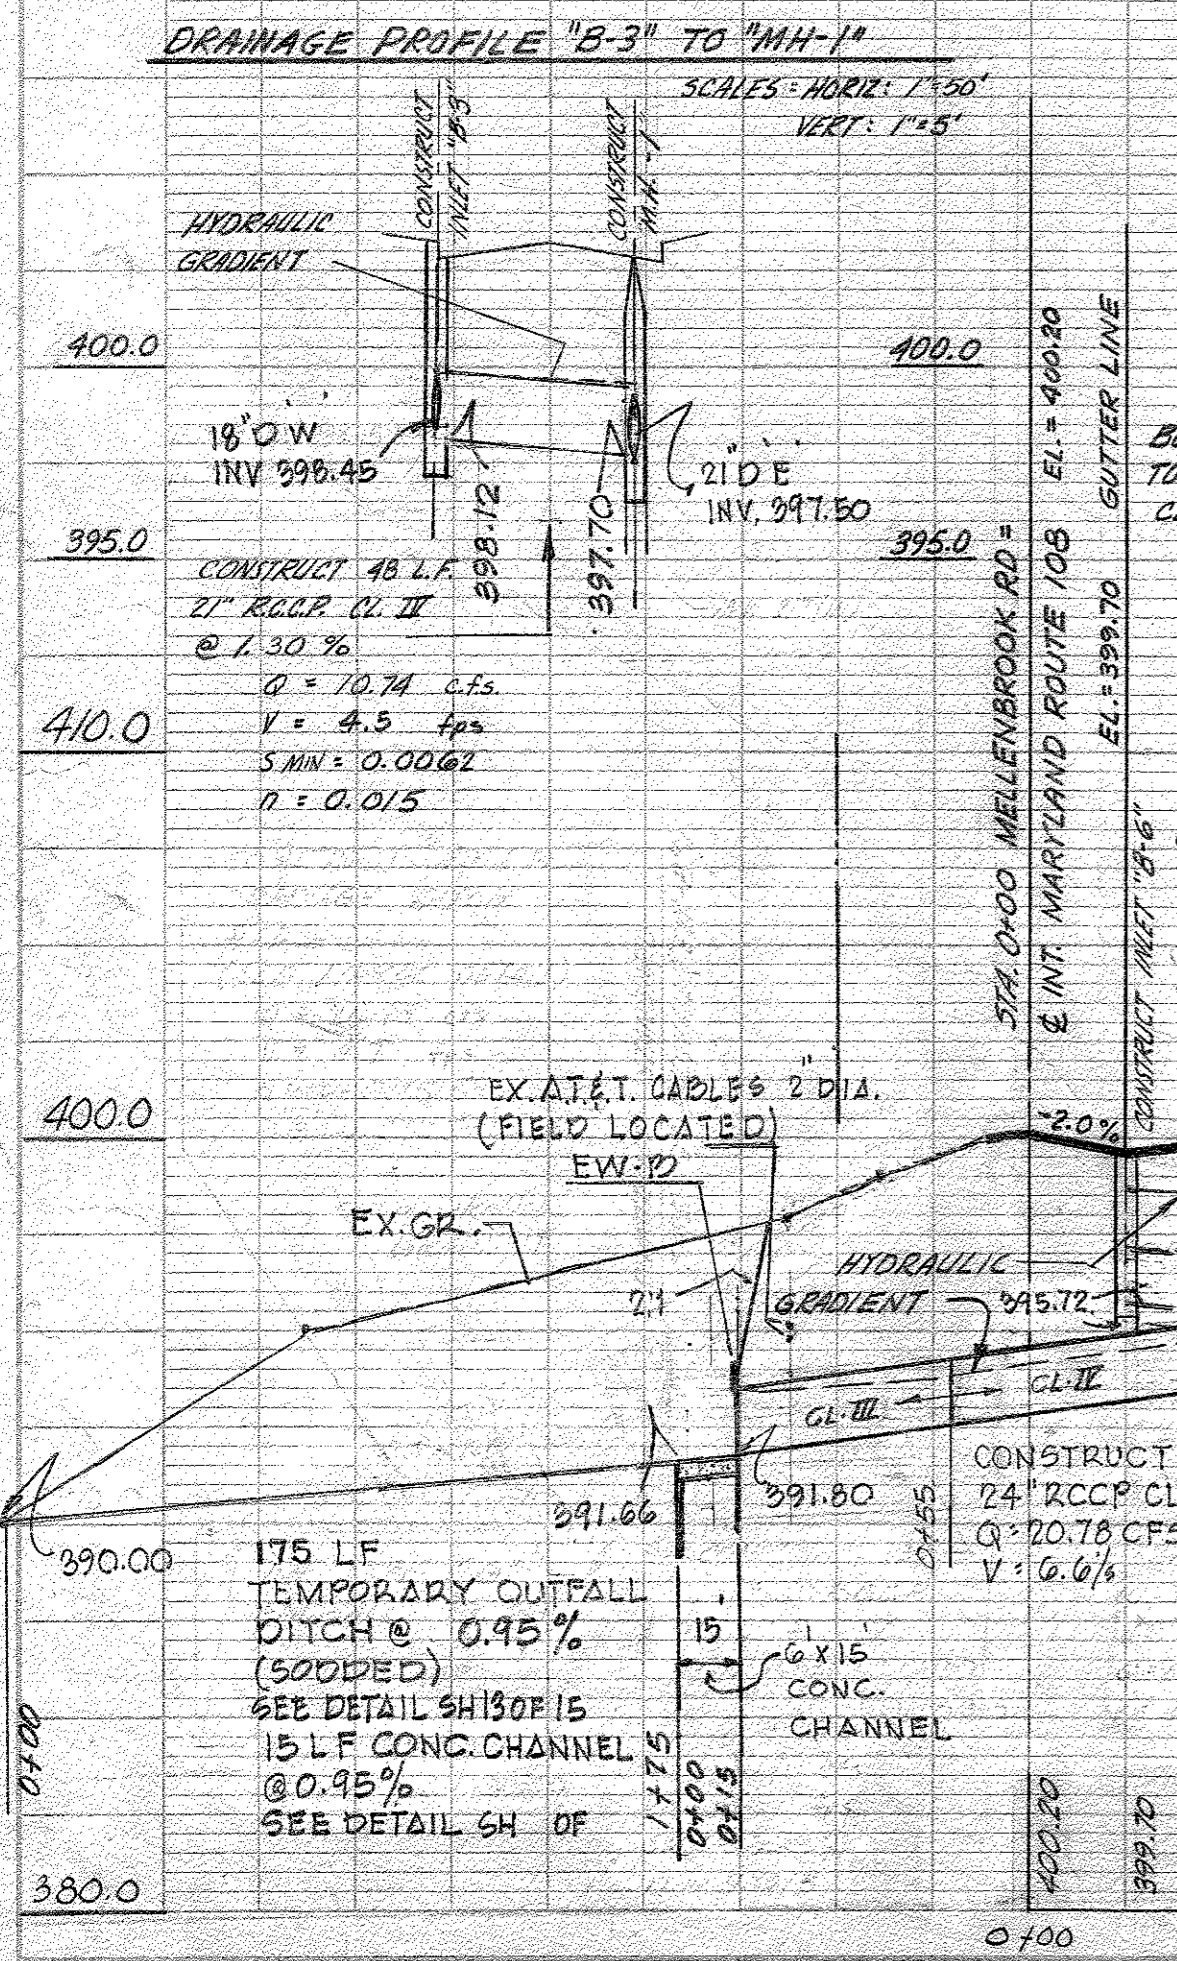 DRAINAGE PROFILE "B-3" TO "MH-1"
SCALES = HORIZ: 1"=50'
VERT: 1"=5'
CONSTRUCT
INLET "B-3"
CONSTRUCT
M.H. -1
HYDRAULIC
GRADIENT
400.0
400.0
18" D W
INV 398.45
21" D E
INV. 397.50
395.0
395.0
398.12
397.70
CONSTRUCT 48 L.F.
21" R.C.C.P. CL. IV
@ 1.30 %
Q = 10.74 c.f.s.
V = 4.5 fps
S MIN = 0.0062
n = 0.015
STA. 0+00 MELLENBROOK RD =
℄ INT. MARYLAND ROUTE 108 EL. = 400.20
EL. = 399.70 GUTTER LINE
CONSTRUCT INLET "B-6"
TO
410.0
400.0
EX. A.T.&T. CABLES 2" DIA.
(FIELD LOCATED)
EW-B
-2.0%
EX. GR.
2:1
HYDRAULIC
GRADIENT
395.72
CL. III
CL. IV
391.66
391.80
390.00
0+55
CONSTRUCT
24" RCCP CL
Q = 20.78 CFS
V = 6.6'/s
175 LF
TEMPORARY OUTFALL
DITCH @ 0.95 %
(SODDED)
SEE DETAIL SH 13 OF 15
15 LF CONC. CHANNEL
@ 0.95%
SEE DETAIL SH OF
15'
6' X 15'
CONC.
CHANNEL
0+00
1+75
0+00
0+15
400.20
399.70
380.0
0+00